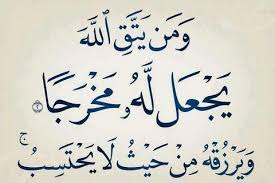 وَمَن يَتَّقِ اللَّهَ
يَجْعَل لَّهُۥ مَخْرَجًا ٢
وَيَرْزُقْهُ مِنْ حَيْثُ لَا يَحْتَسِبُ ۚ